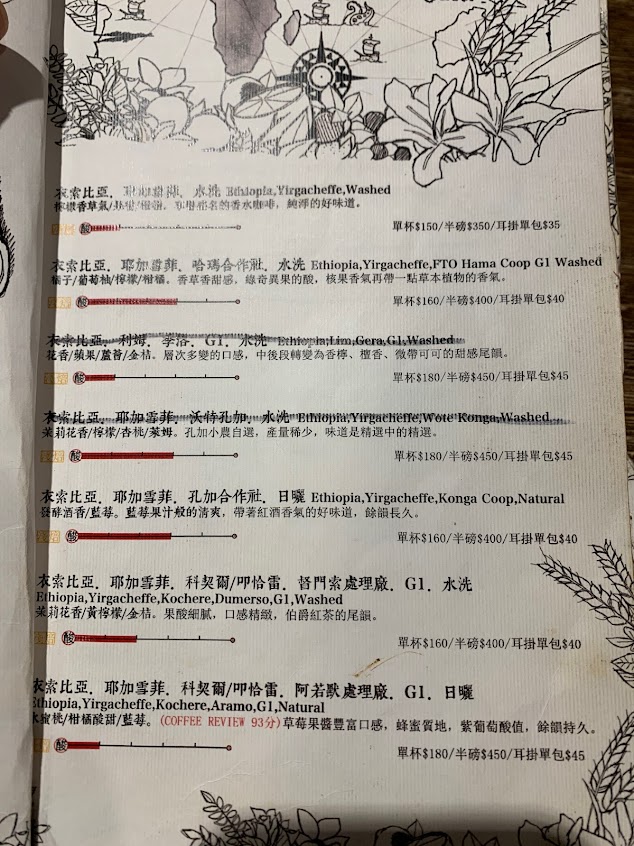 衣索比亞．耶加雪菲．水洗 Ethiopia,Yirgacheffe,Washed
檸檬香草氣/ 純淨的好味道。
酸
單杯$150/半磅$350/耳掛單包$35
衣索比亞．耶加雪菲．哈瑪合作社．水洗 Ethiopia,Yirgacheffe,FTO Hama Coop G1 Washed
橘子/葡萄柚/檸檬/柑橘。香草香甜感，綠奇異果的酸，核果香氣再帶一點草本植物的香氣。
酸
單杯$160/半磅$400/耳掛單包$40
衣索比亞．利姆．季洛．G1．水洗 Ethiopia,Lim,Gera,G1,Washed
花香/蘋果/蘆薈/金桔。層次多變的口感，中後段轉變為香檸、檀香、微帶可可的甜感尾韻。
酸
單杯$180/半磅$450/耳掛單包$45
衣索比亞．耶加雪菲．沃特孔加．水洗 Ethiopia,Yirgacheffe,Wote Konga,Washed
茉莉花香/檸檬/杏桃/萊姆。孔加小農自選，產量稀少，味道是精選中的精選。
酸
單杯$180/半磅$450/耳掛單包$45
衣索比亞．耶加雪菲．孔加合作社．日曬 Ethiopia,Yirgacheffe,Konga Coop,Natural
發酵酒香/藍莓。藍莓果汁般的清爽，帶著紅酒香氣的好味道，餘韻長久。
酸
單杯$160/半磅$400/耳掛單包$40
衣索比亞．耶加雪菲．科契爾/叩恰雷．督門索處理廠．G1．水洗
Ethiopia,Yirgacheffe,Kochere,Dumerso,G1,Washed
茉莉花香/黃檸檬/金桔。果酸細膩，口感精緻，伯爵紅茶的尾韻。
酸
單杯$160/半磅$400/耳掛單包$40
衣索比亞．耶加雪菲．科契爾/叩恰雷．阿若默處理廠．G1．日曬
Ethiopia,Yirgacheffe,Kochere,Aramo,G1,Natural
水蜜桃/柑橘酸甜/藍莓。(COFFEE REVIEW 93分)草莓果醬豐富口感，蜂蜜質地，紫葡萄酸值，餘韻持久。
酸
單杯$180/半磅$450/耳掛單包$45